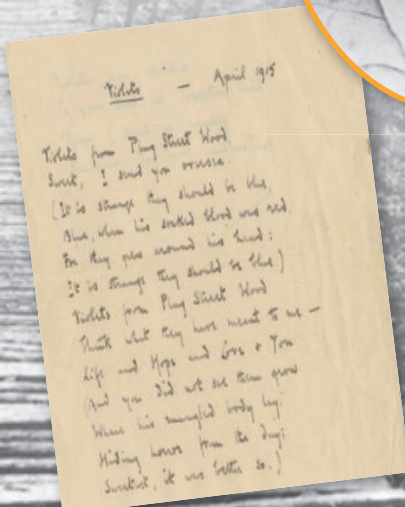 Violets — April 1915
Violets from Plug Street Wood
Sweet, I send you oversea.
(It is strange they should be blue,
Blue, when his soaked blood was red,
For they grew around his head;
It is strange they should be blue.)
Violets from Plug Street Wood
Think what they have meant to me —
Life and Hope and Love & You
(And you did not see them grow
Where his mangled body lay
Hiding horror from the day;
Sweetest, it was better so.)